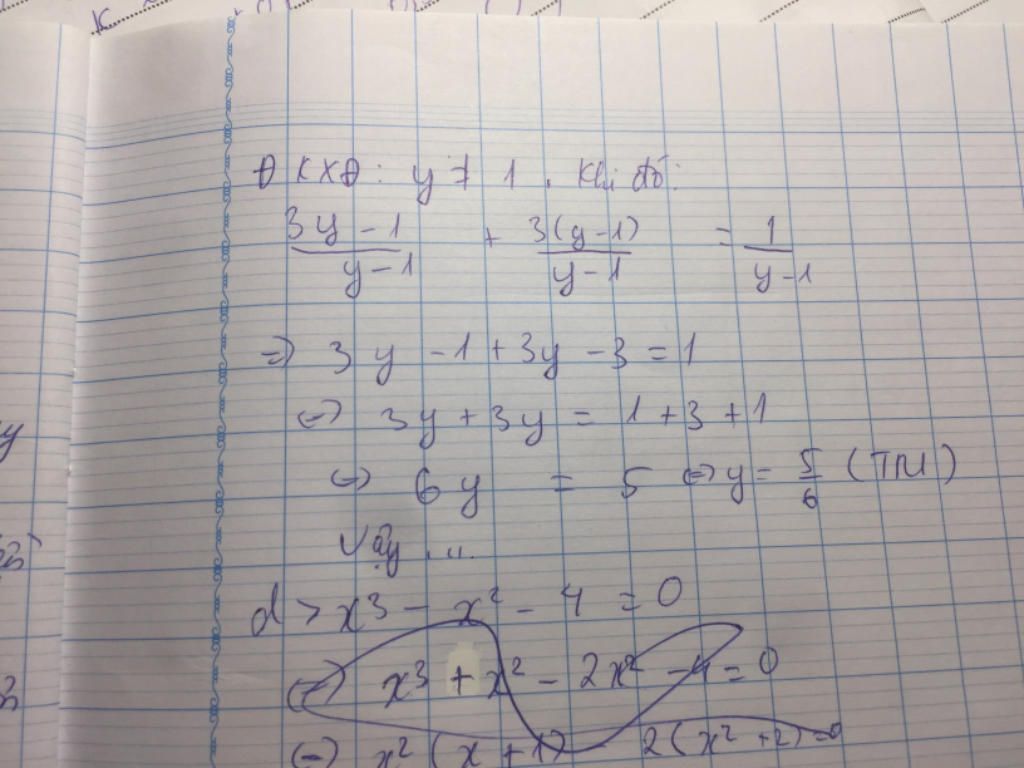 ĐKXĐ: y ≠ 1. Khi đó:
(3y - 1)/(y - 1) + 3(y - 1)/(y - 1) = 1/(y - 1)
=> 3y - 1 + 3y - 3 = 1
<=> 3y + 3y = 1 + 3 + 1
<=> 6y = 5 <=> y = 5/6 (TM)
Vậy ...
d > x³ - x² - 4 = 0
<=> x³ + x² - 2x² - 4 = 0
<=> x² (x + 1) - 2(x² + 2) = 0